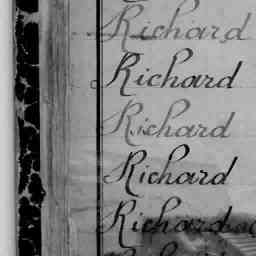 Richard
Richard
Richard
Richard
Richard